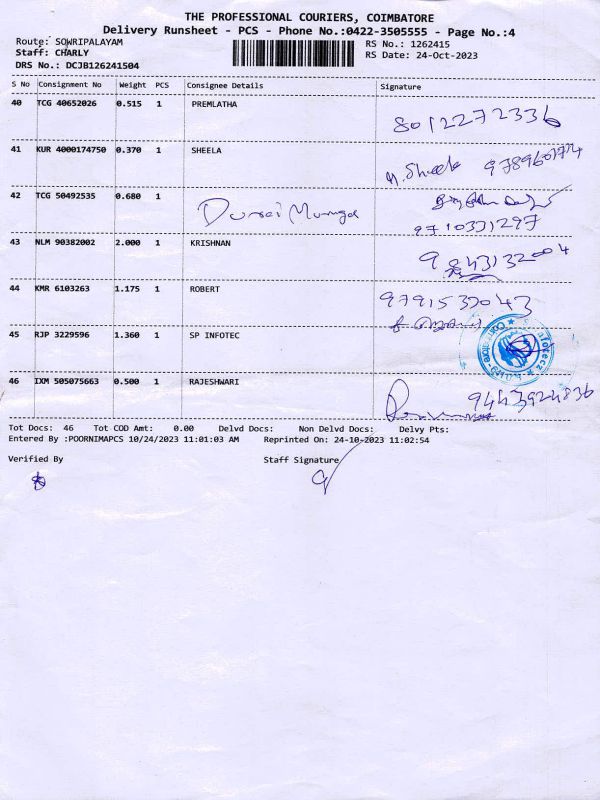 THE PROFESSIONAL COURIERS, COIMBATORE
Delivery Runsheet - PCS - Phone No.:0422-3505555 - Page No.:4
Route: SOWRIPALAYAM
RS No.: 1262415
Staff: CHARLY
RS Date: 24-Oct-2023
DRS No.: DCJB126241504
S No Consignment No Weight PCS Consignee Details Signature
40 TCG 40652026 0.515 1 PREMLATHA
8012272336
41 KUR 4000174750 0.370 1 SHEELA
M. Sheela
42 TCG 50492535 0.680 1
Durai Muruga
9710331297
43 NLM 90382002 2.000 1 KRISHNAN
9843132004
44 KMR 6103263 1.175 1 ROBERT
9791533043
45 RJP 3229596 1.360 1 SP INFOTEC
46 IXM 505075663 0.500 1 RAJESHWARI
9443924836
Tot Docs: 46 Tot COD Amt: 0.00 Delvd Docs: Non Delvd Docs: Delvy Pts:
Entered By :POORNIMAPCS 10/24/2023 11:01:03 AM Reprinted On: 24-10-2023 11:02:54
Verified By Staff Signature